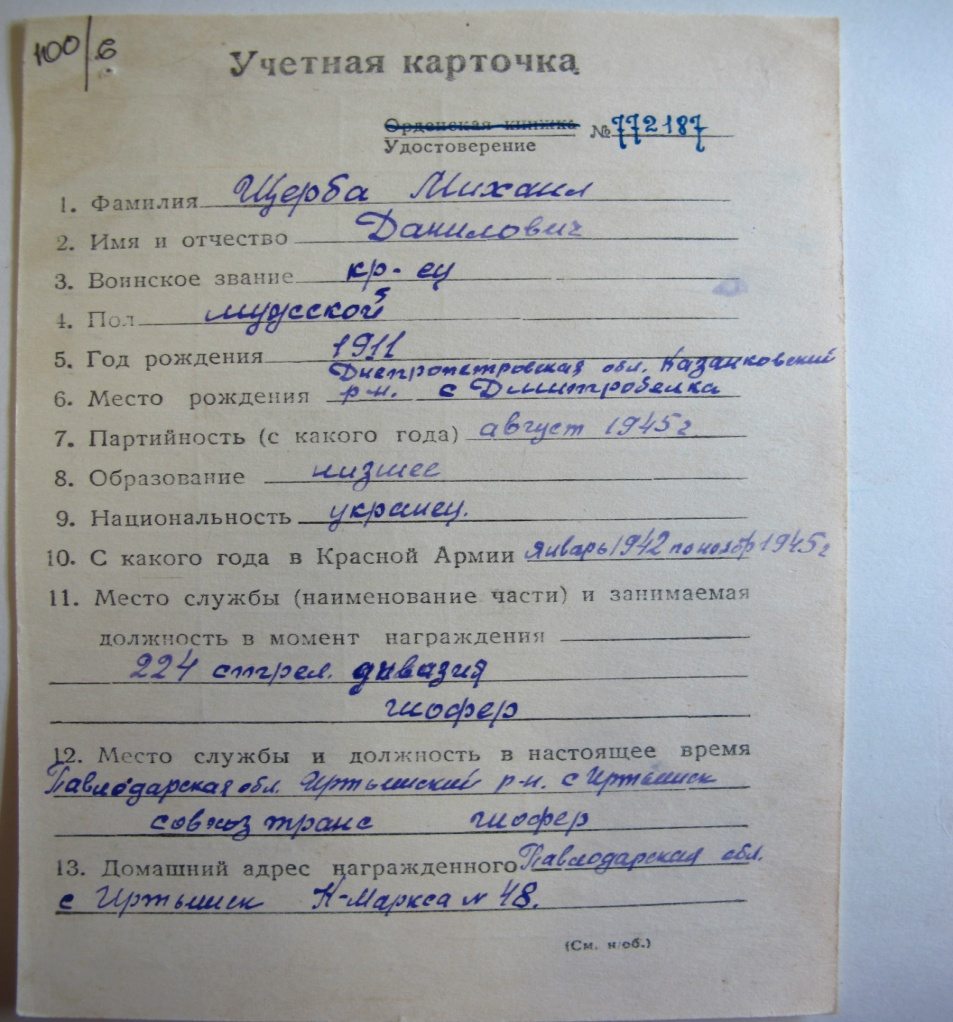 400/6
Учетная карточка
Орденская книжка
Удостоверение № 772187
1. Фамилия Щерба Михаил
2. Имя и отчество Данилович
3. Воинское звание кр-ец
4. Пол мужской
5. Год рождения 1911
Днепропетровская обл. Казанковский
6. Место рождения р-н. с Дмитробелка
7. Партийность (с какого года) август 1945 г
8. Образование низшее
9. Национальность украинец.
10. С какого года в Красной Армии январь 1942 по ноябр 1945 г
11. Место службы (наименование части) и занимаемая
должность в момент награждения
224 стрел. дивазия
шофер
12. Место службы и должность в настоящее время
Павлодарская обл. Иртышский р-н. с Иртышск
совхоз транс шофер
13. Домашний адрес награжденного Павлодарская обл.
с Иртышск К-Маркса № 48.
(См. н/об.)